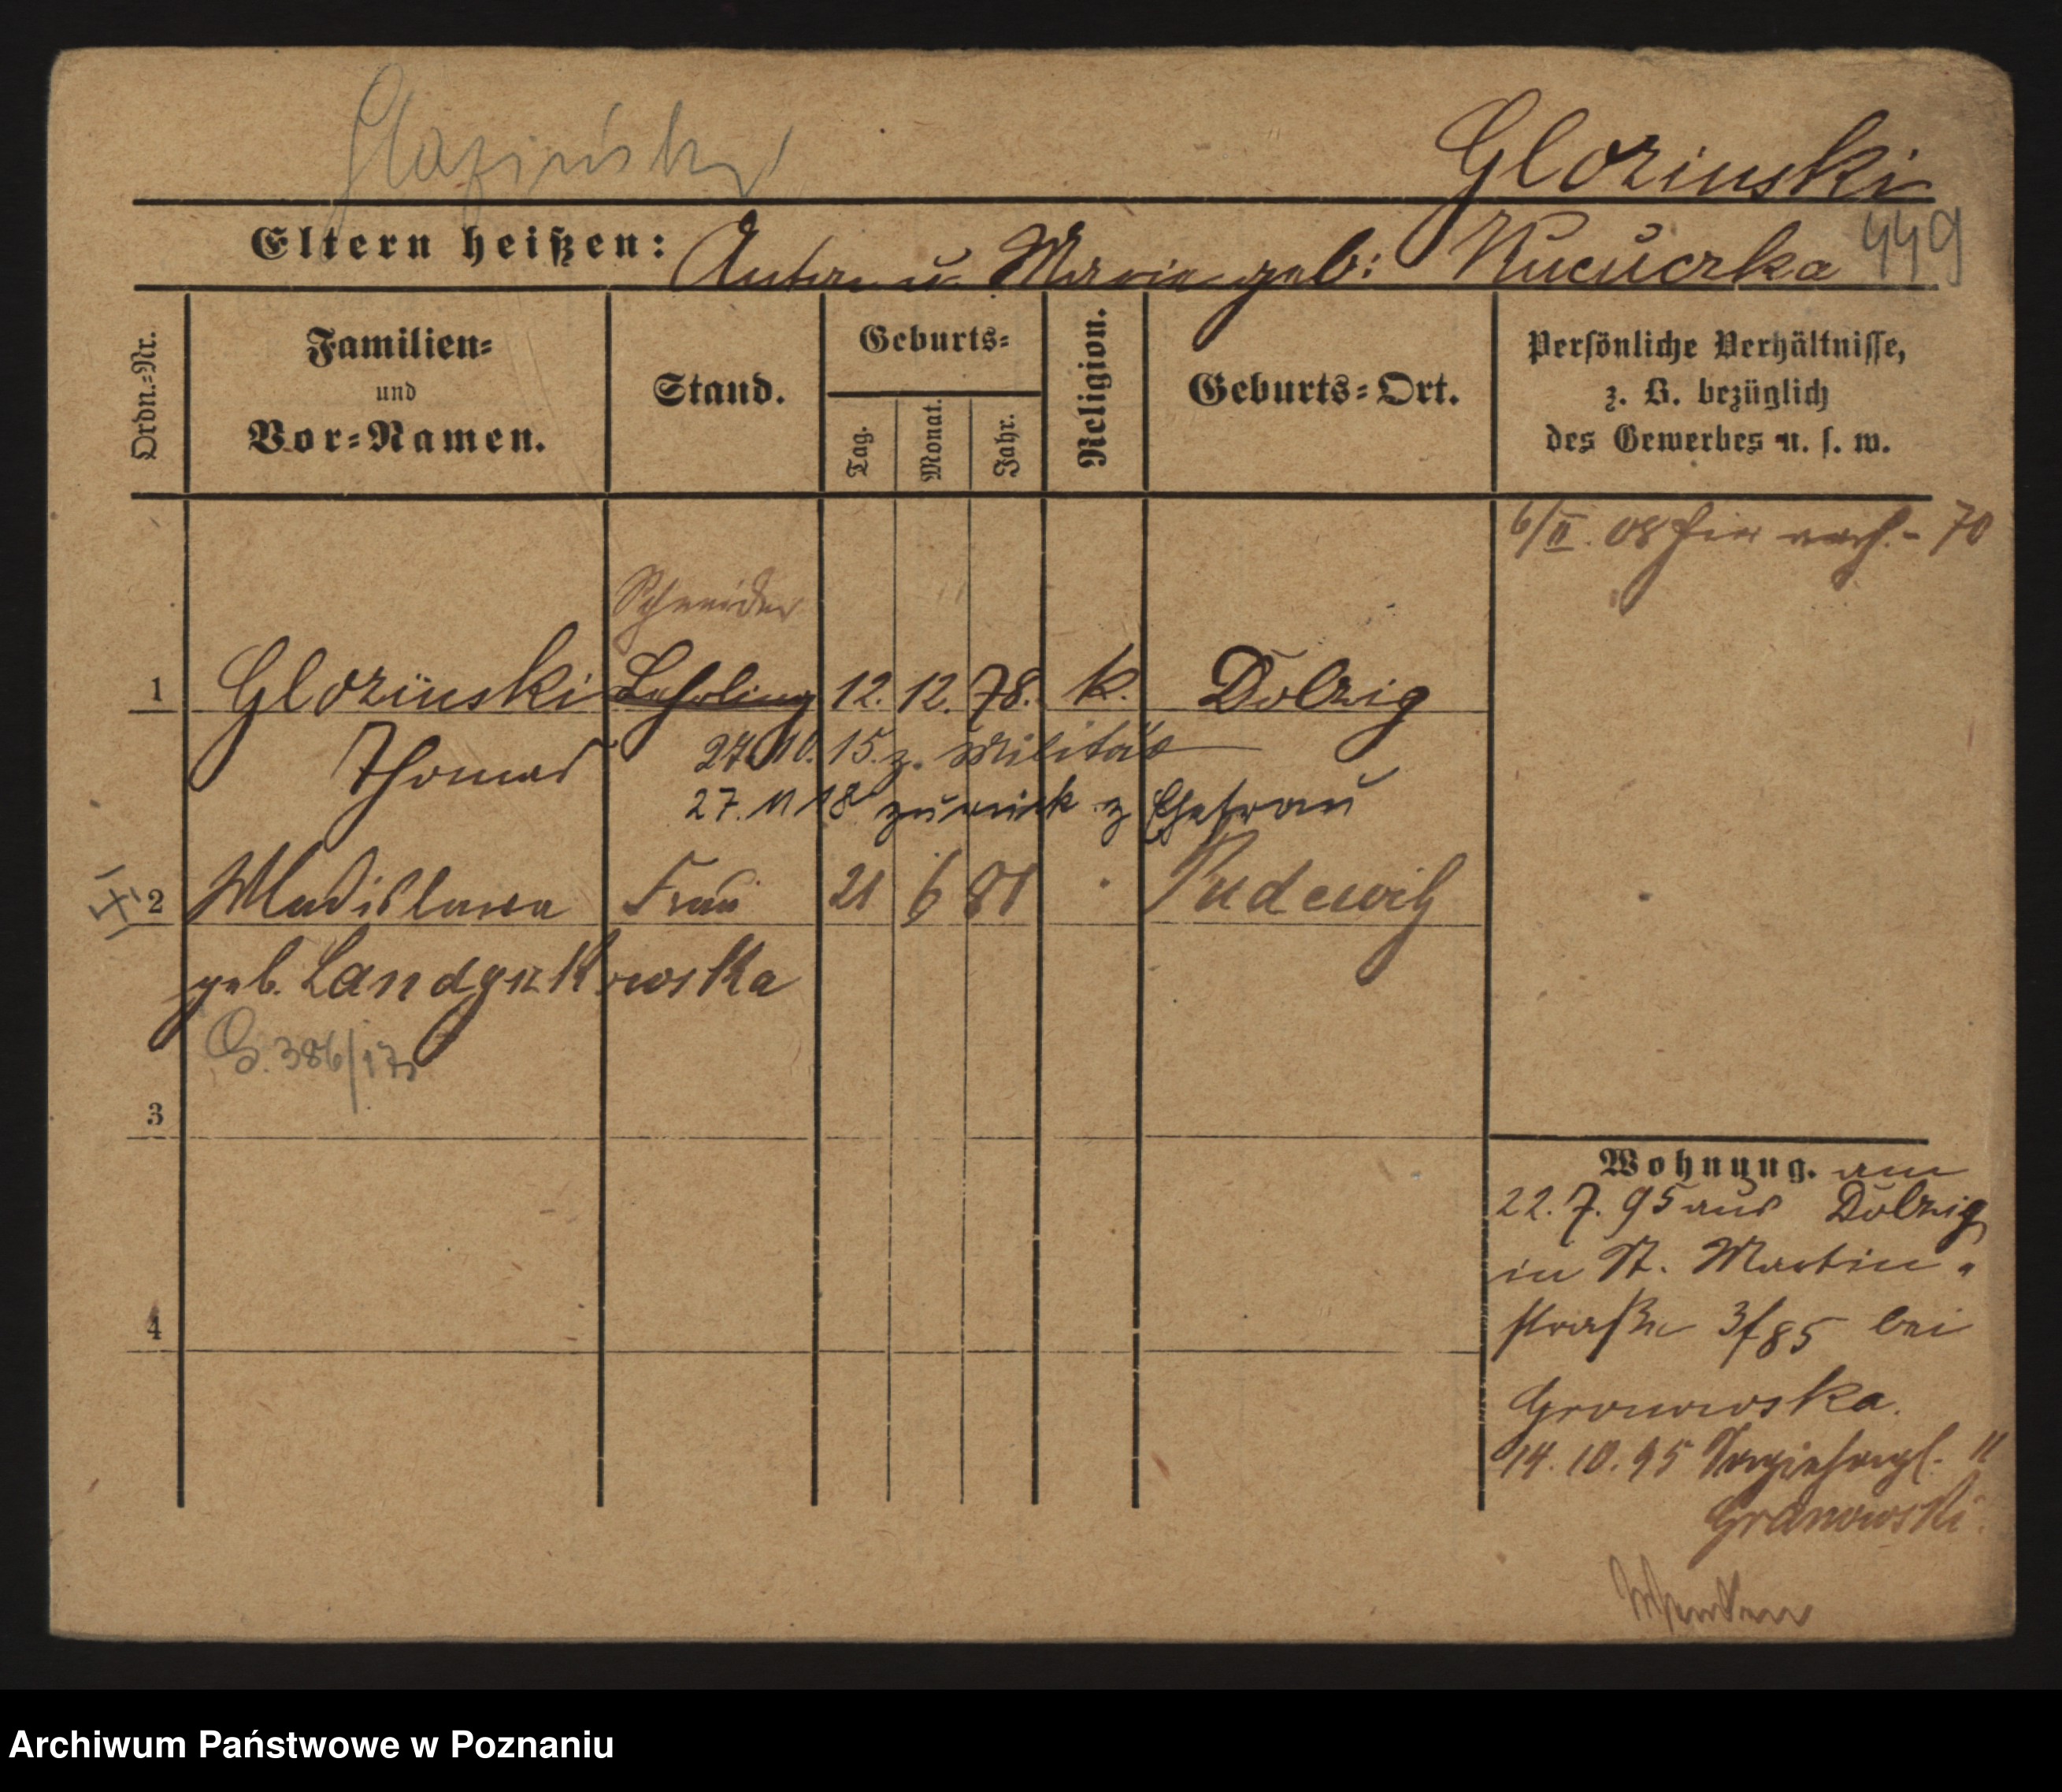 Glaziński
Glozinski
Eltern heißen: Anton u. Marie geb: Kucuczka 449
Ordn.=Nr.
Familien=
und
Vor=Namen.
Stand.
Geburts=
Tag.
Monat.
Jahr.
Religion.
Geburts=Ort.
Persönliche Verhältnisse,
z. B. bezüglich
des Gewerbes u. s. w.
6/II. 08 hier - 70
Schneider
1 Glozinski Lehrling 12. 12. 78. k. Dolzig
Thomas 27. 10. 15. z. Militär
27. 11 18 zurück z Ehefrau
2 Wladislawa Frau 21 6 81 Pudewitz
geb. Landgrzkowska
G. 386/17
3
4
Wohnung. am
22. 7. 95 aus Dolzig
in St. Martin
straße 3/85 bei
Gronowska.
14. 10. 95 11
Granowski.
Archiwum Państwowe w Poznaniu